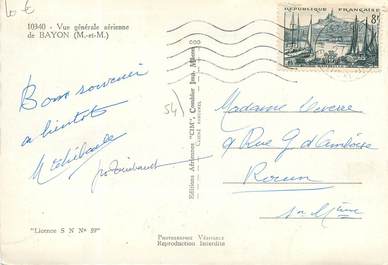 10 €
10340 - Vue générale aérienne
de BAYON (M.-et-M.)
RÉPUBLIQUE FRANÇAISE
8f
Bons souvenirs
a bientôt
54)
Editions Aériennes "CIM", Combier Imp. Mâcon
Madame
9 Rue G d'Amboise
Rouen
Sne Mme
"Licence S N N° 59"
PHOTOGRAPHIE VÉRITABLE
Reproduction Interdite